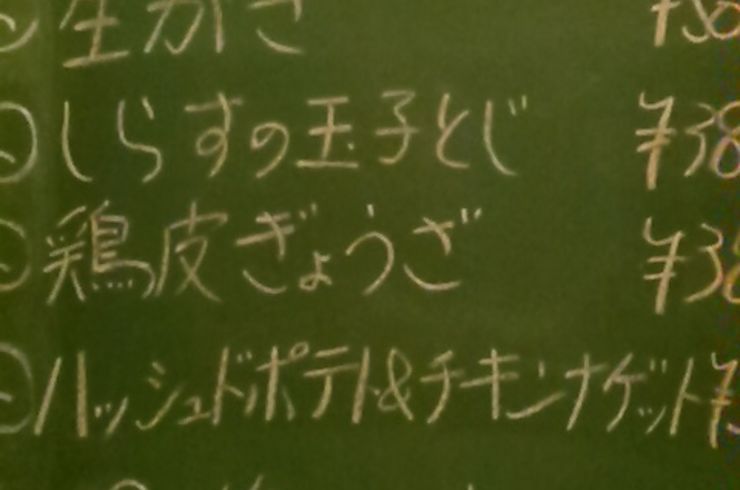 生がき
しらすの玉子とじ ¥38
鶏皮ぎょうざ ¥38
ハッシュドポテト&チキンナゲット ¥